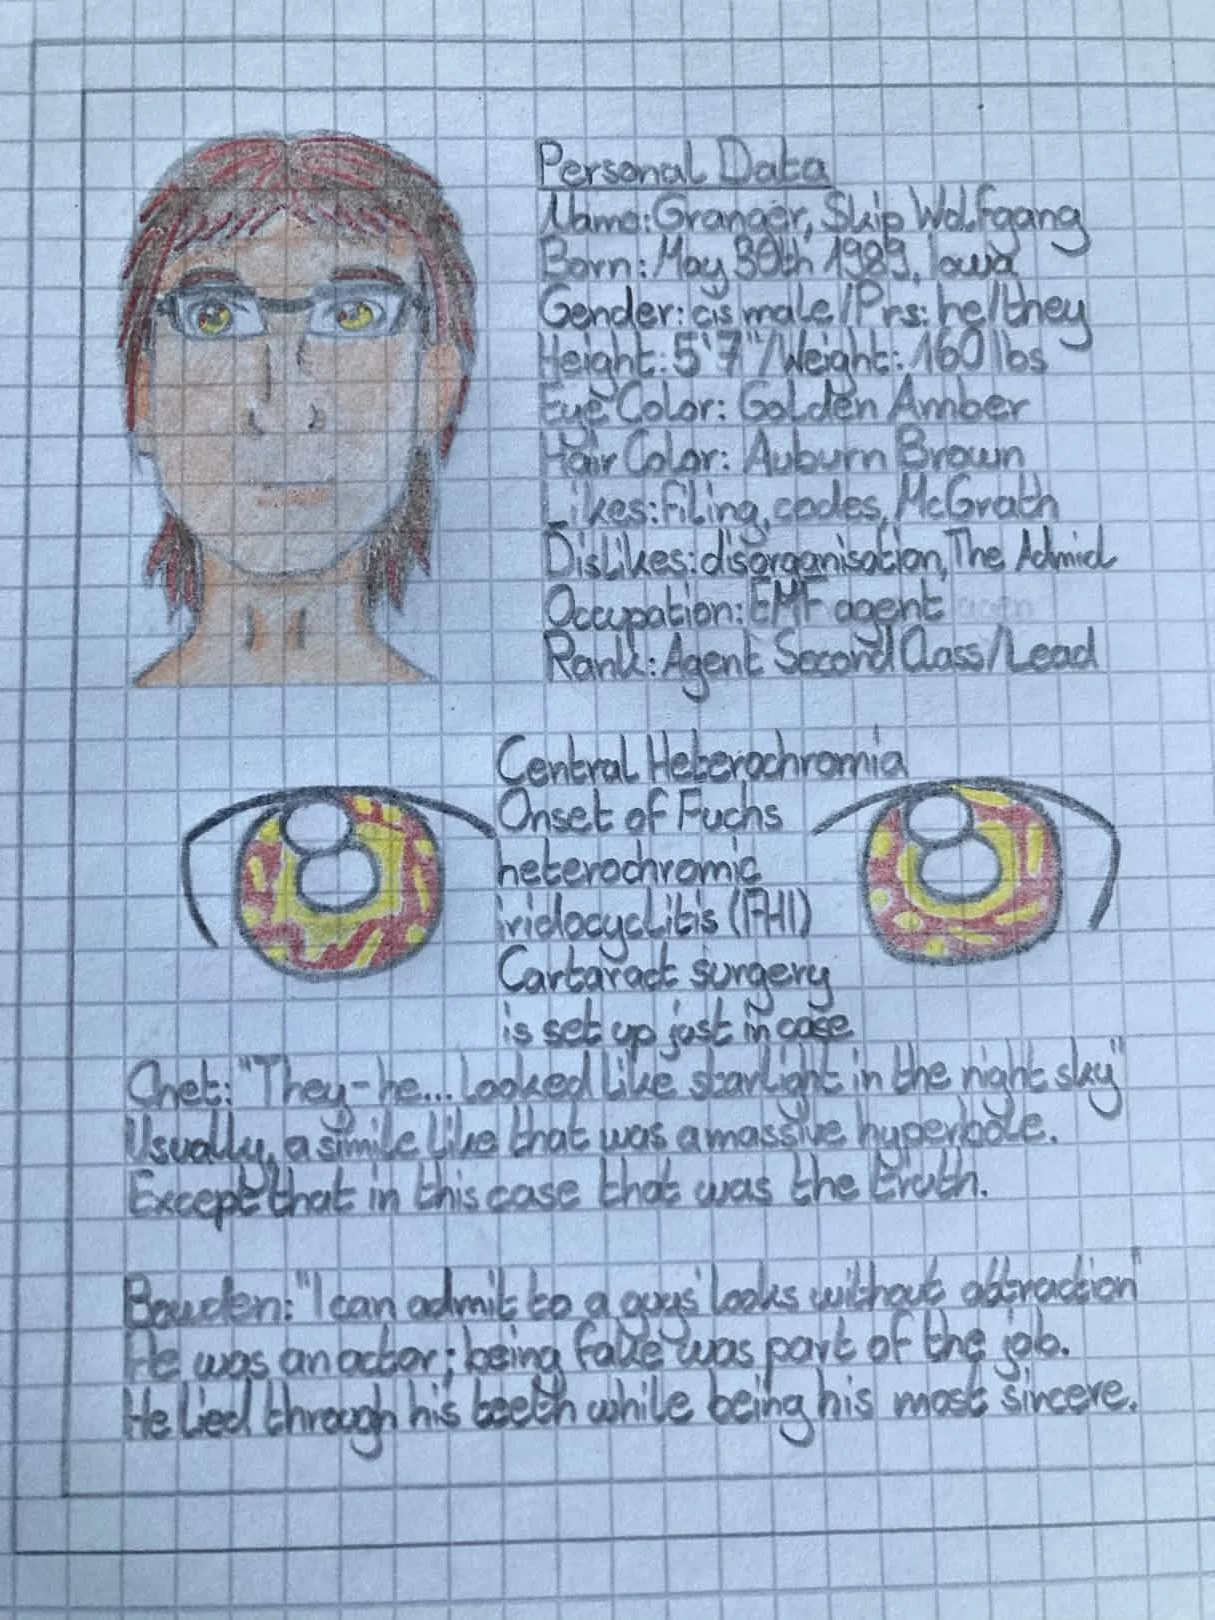 Personal Data
Name: Granger, Skip Wolfgang
Born: May 30th 1989, Iowa
Gender: cis male/Prs: he/they
Height: 5'7"/Weight: 160 lbs
Eye Color: Golden Amber
Hair Color: Auburn Brown
Likes: filing, codes, McGrath
Dislikes: disorganisation, The Admid
Occupation: EMF agent
Rank: Agent Second Class/Lead
Central Heterochromia
Onset of Fuchs
heterochromic
iridocyclitis (FHI)
Cartaract surgery
is set up just in case
Chet: "They-he... looked like starlight in the night sky"
Usually, a simile like that was a massive hyperbole.
Except that in this case that was the truth.
Bowden: "I can admit to a guys' looks without attraction"
He was an actor; being fake was part of the job.
He lied through his teeth while being his most sincere.